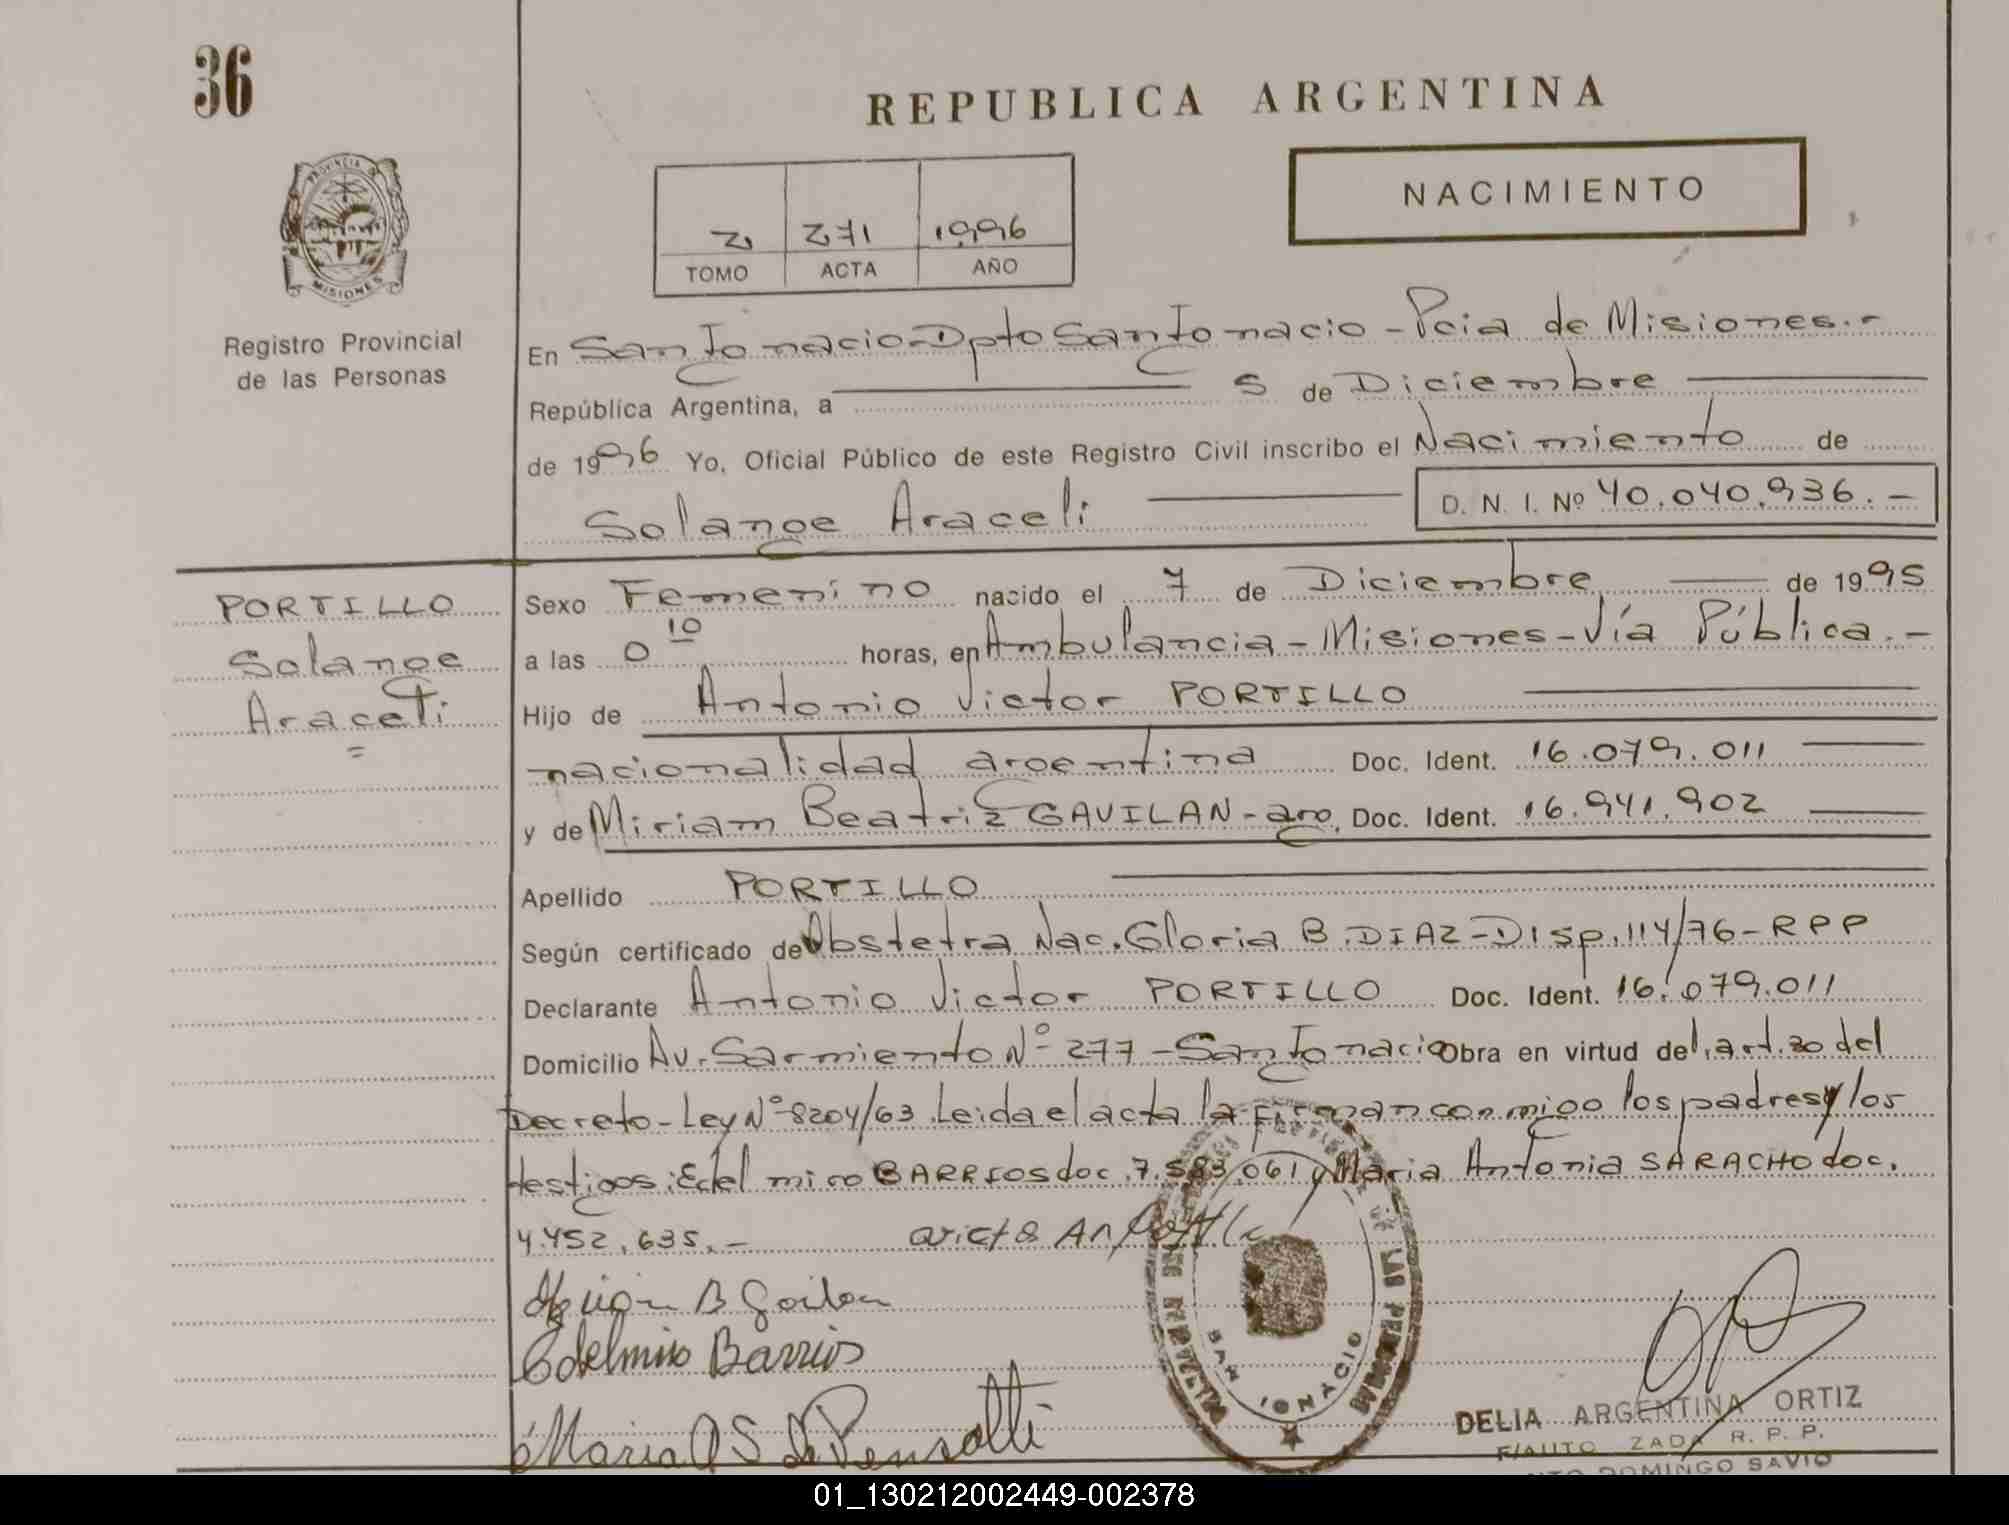 36
REPUBLICA ARGENTINA
NACIMIENTO
PROVINCIA DE
MISIONES
Registro Provincial
de las Personas
2 271 1996
TOMO ACTA AÑO
En San Ignacio-Dpto San Ignacio-Pcia de Misiones.-
República Argentina, a 5 de Diciembre
de 1996 Yo, Oficial Público de este Registro Civil inscribo el Nacimiento de
Solange Araceli D. N. I. Nº 40.040.936.-
PORTILLO
Solange
Araceli
=
Sexo Femenino nacido el 7 de Diciembre de 1995
a las 0 10 horas, en Ambulancia-Misiones-Vía Pública.-
Hijo de Antonio Victor PORTILLO
nacionalidad argentina Doc. Ident. 16.079.011
y de Miriam Beatriz GAVILAN-arg. Doc. Ident. 16.941.902
Apellido PORTILLO
Según certificado de Obstetra Nac. Gloria B. DIAZ-Disp.114/76-RPP
Declarante Antonio Victor PORTILLO Doc. Ident. 16.079.011
Domicilio Av. Sarmiento Nº 277-San Ignacio Obra en virtud del art.30 del
Decreto-Ley Nº 8204/63. Leida el acta la firman conmigo los padres y los
testigos: Edelmiro BARRIOS doc. 7.583.061 y Maria Antonia SARACHO doc.
4.452.635.-
B
Edelmiro Barrios
Maria A S de Pensotti
LAS PERSONAS
SAN IGNACIO
DELIA ARGENTINA ORTIZ
F/AUTO ZADA R. P. P.
DOMINGO SAVIO
01_130212002449-002378